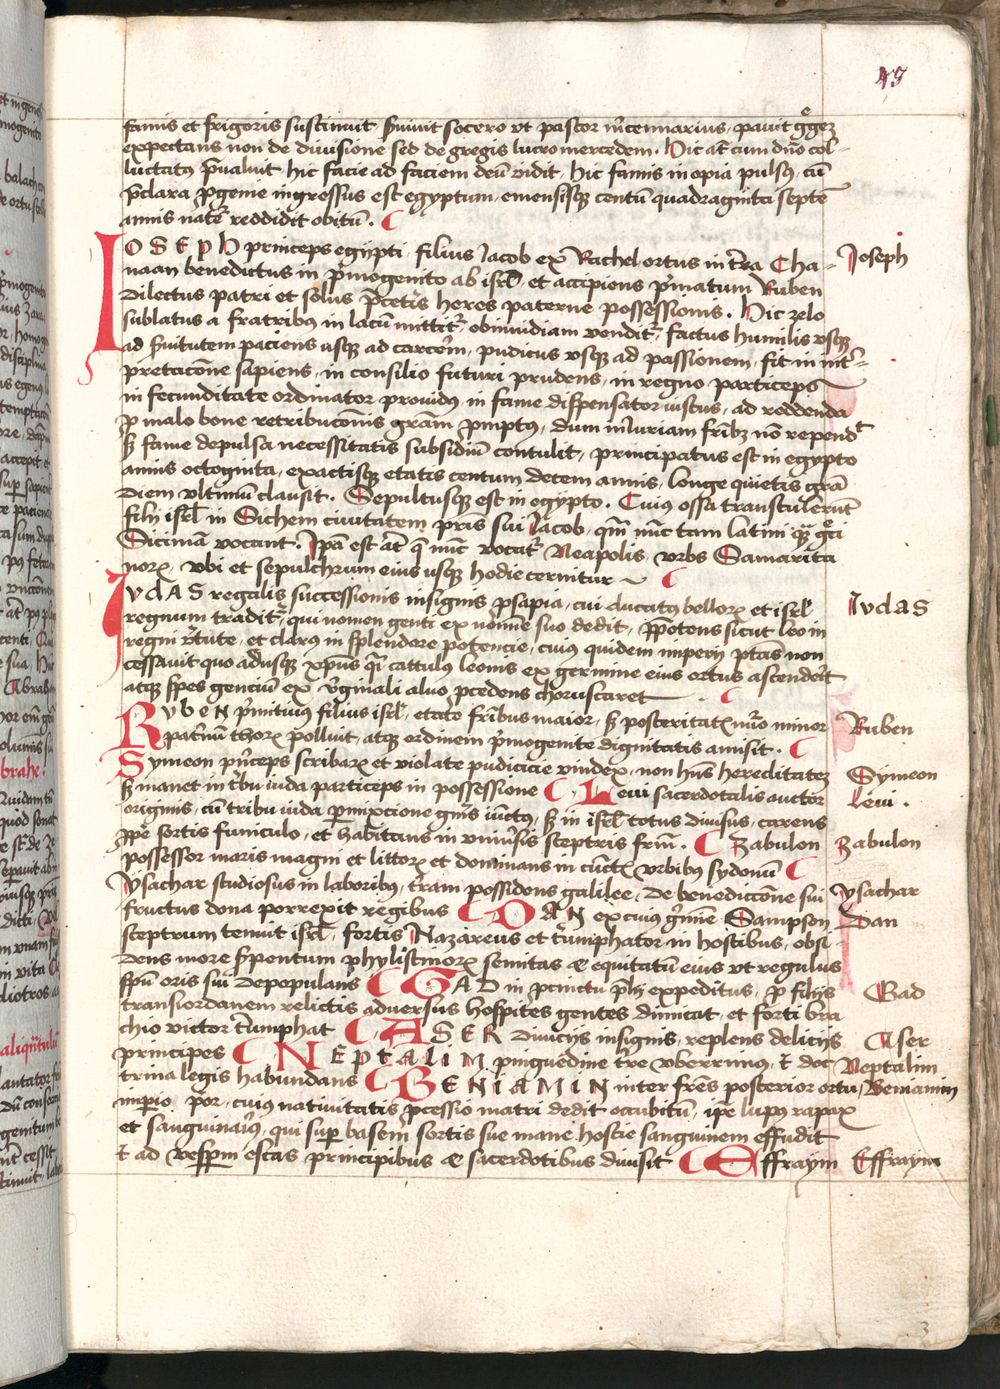 49
famis et frigoris sustinuit s̄uiuit socero vt pastor m̄cennarius, pauit g̊gez
expectans non de diuisione sed de gregis lucro mercedem. Hic at̄ cum dn̄o col-
luctatꝰ p̄ualuit hic facie ad faciem deū vidit, hic famis inopia pulsꝰ, cū
p̄clara ꝓgenie ingressus est egyptum, emensisqꝫ centū quadraginta septē
annis nat᷑e reddidit obitū.
IOSEPH princeps egipti filius Iacob ex Rachel ortus in t̄ra Cha- Joseph
naan benedictus in p̄mogenito ab isrl̄, et accipiens p̄matum Ruben
Dilectus patri et solus p̄cet̄is heres paterne possessionis. Hic zelo
sublatus a fratribꝰ in lacū mittit᷑, ob inuidiam vendit᷑, factus humilis vsqꝫ
ad s̄uitutem paciens usqꝫ ad carcerē, pudicus vsqꝫ ad passionem, fit in int̄-
pretacōne sapiens, in consilio futuri prudens, in regno particeps
in fecunditate ordinator prouidꝰ, in fame dispensator iustus, ad reddenda
ꝓ malo bone retribucōnis grām ꝓmptꝰ, dum iniuriam frībꝫ nō repend᷑
sꝫ fame depulsa necessitatis subsidiū contulit, principatus est in egypto
annis octoginta, exactisqꝫ etatis centum decem annis, longe quietis grā
diem vltimū clausit. Sepultusqꝫ est in egypto. Cuius ossa transtulerūt
filij isrl̄ in Sichem ciuitatem pris sui Iacob, qm̄ nūc tam latini qꝫ g̊ci
Sicimā vocant. Ipā est at̄ q̄ nūc vocat᷑ Neapolis, vrbs Samarita
noꝝ, vbi et sepulchrum eius usqꝫ hodie cernitur
IVDAS regalis successionis insignis ꝓsapia, cui ducatꝰ belloꝝ et isrl̄ Iudas
regnum tradit᷑, qui nomen genti ex noīne suo dedit, p̄potens sicut leo in
regni v̄tute, et clarꝰ in splendore potencie, cuius quidem imperij ptās non
cessauit quo adusqꝫ xp̄us q̄i cattulus leonis ex germine eius ortus ascenderit
atqꝫ spes genciū ex v̄ginali aluo ꝓcedens choruscaret
RVBEN p̄mitiuus filius isrl̄, etate fr̄ibus maior, sꝫ posteritatꝭ nūo minor Ruben
patr̄nū thorꝝ polluit, atqꝫ ordinem p̄mogenite dignitatis amisit.
Symeon p̄nceps scribaꝝ et violate pudicicie vindex, non hn̄s hereditatez Symeon
sꝫ manet in t̄bu iuda particeps in possessione Leui sacerdotalis auctor Leui.
originis, cū tribu iuda permixcione gn̄is iūctꝰ, sꝫ in isrl̄ totus diuisus, carens
ꝓpe sortis funiculo, et habitans in vniūsis sceptris fr̄m. Zabulon Zabulon
possessor maris magni et littoꝝ et dominans in cūctꝭ vrbibꝰ sydonū
Ysachar studiosus in laboribꝰ, t̄ram possidens galilee, de benediccōne sui Ysachar
fructus dona porrexit regibus DAN ex cuius g̊mine Sampson Dan
sceptrum tenuit isrl̄, fortis Nazareus et t̄umphator in hostibus, obsi
dens more s̄pentum phylistinoꝝ semitas & equitatū eius vt regulus
spū oris sui depopulans GAD in ꝓcinctu p̄lij expeditus, ꝓ filijs Gad
transiordanem relictis aduersus hospites gentes dimicat, et forti bra
chio victor t̄umphat ASER diuicijs insignis, replens delicijs Aser
principes NEPTALIM pinguedine t̄re vberrimꝰ, & doc Neptalim
trina legis habundans BENIAMIN inter fr̄es posterior ortu, Beniamin
imperio p̄or, cuius natiuitatis ꝓcessio matri dedit occubitū, ip̄e lupꝰ rapax
et sanguinariꝰ, qui sup̄ basem sortis sue mane hostie sanguinem effudit
& ad vesp̄m escas principibus & sacerdotibus diuisit Effraym Effraym
3